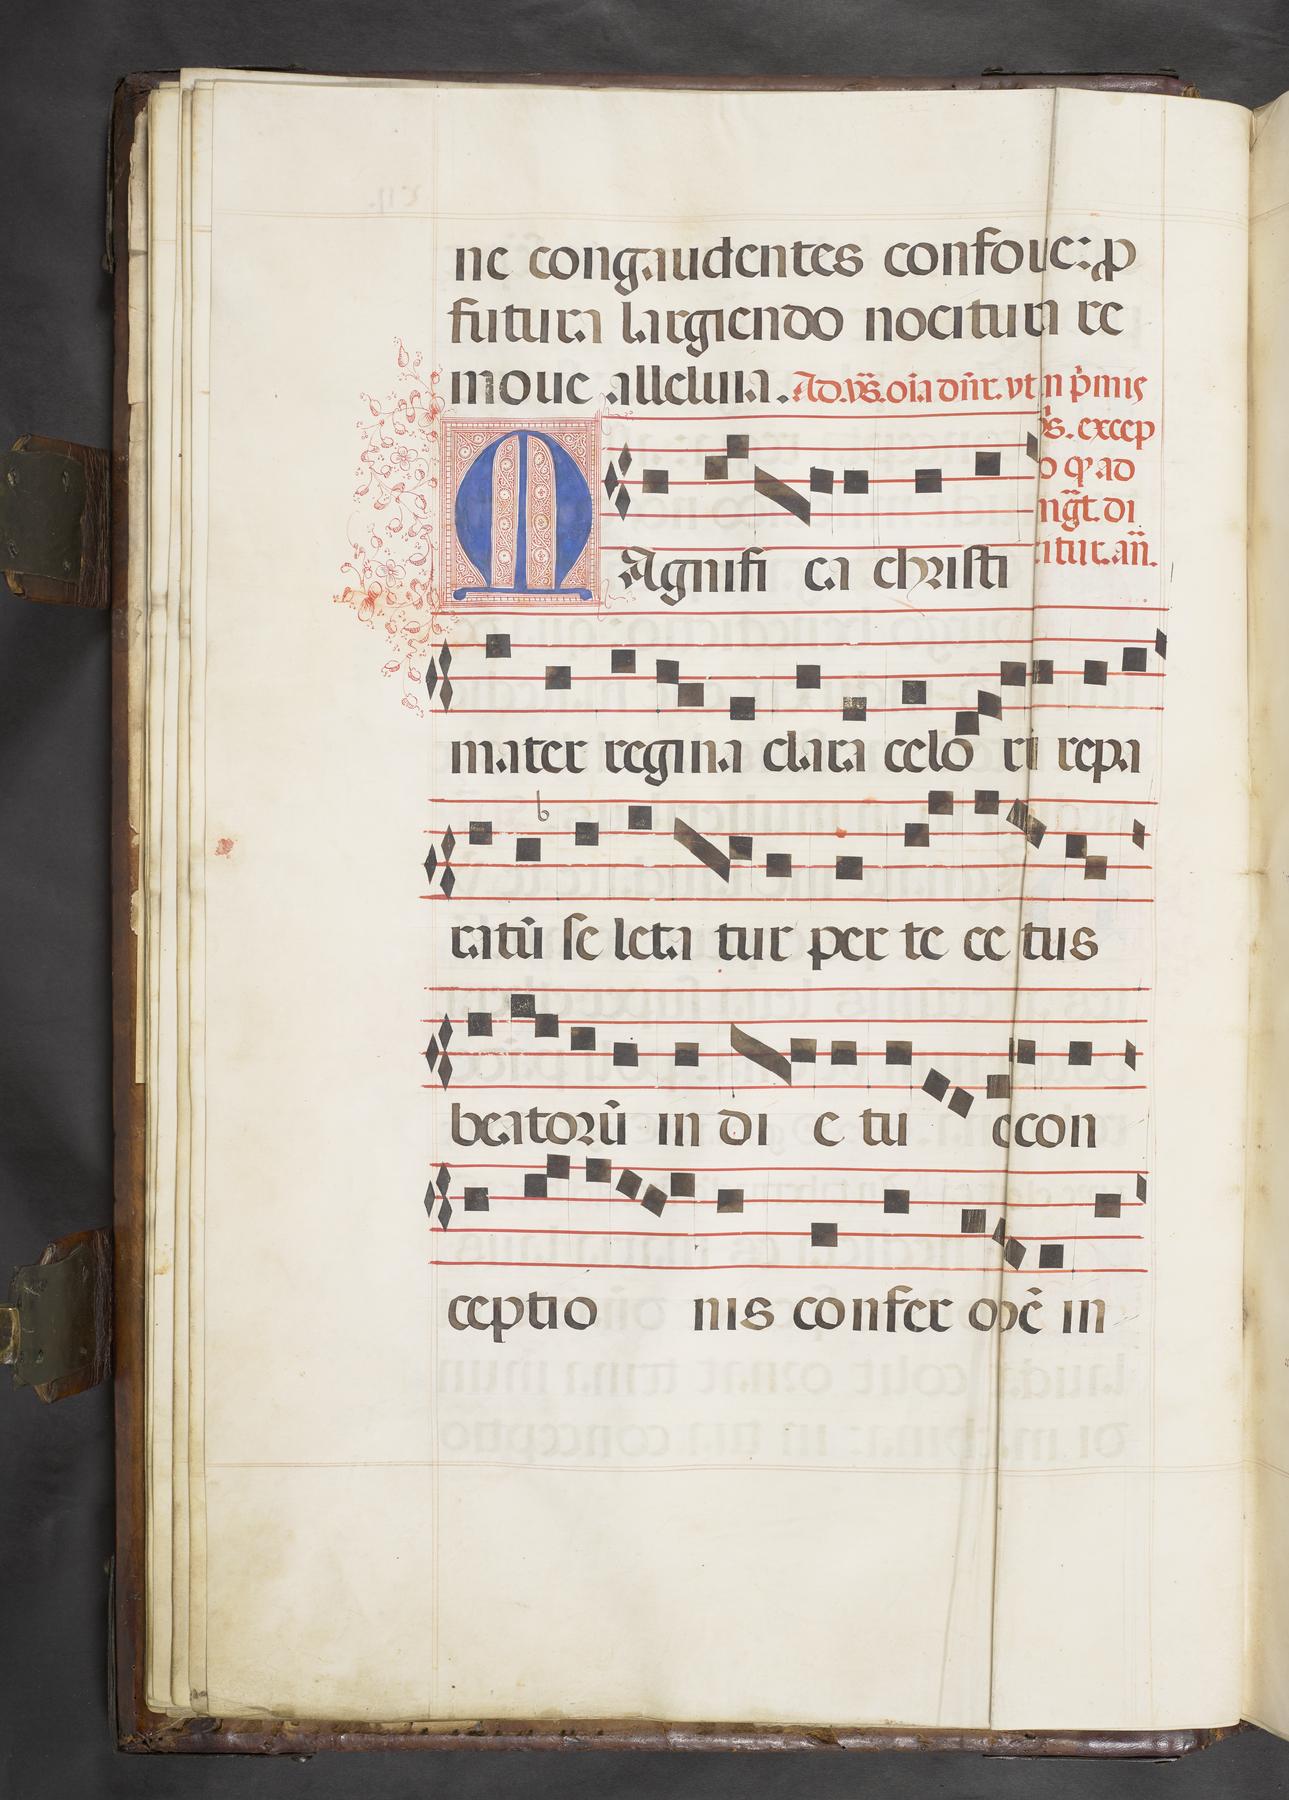 ne congaudentes confove: ꝓ
futura largiendo nocitura re
move alleluia. Ad vs̃. oĩa dñr. vt in p̃mis
vs̃. excep
to ꝙ ad
mgt̃. di
citur. añ.
MAgnifi ca christi
mater regina clara celo ru repa
ratũ se leta tur per te ce tus
beatorũ in di e tu e con
ceptio nis confer opẽ in